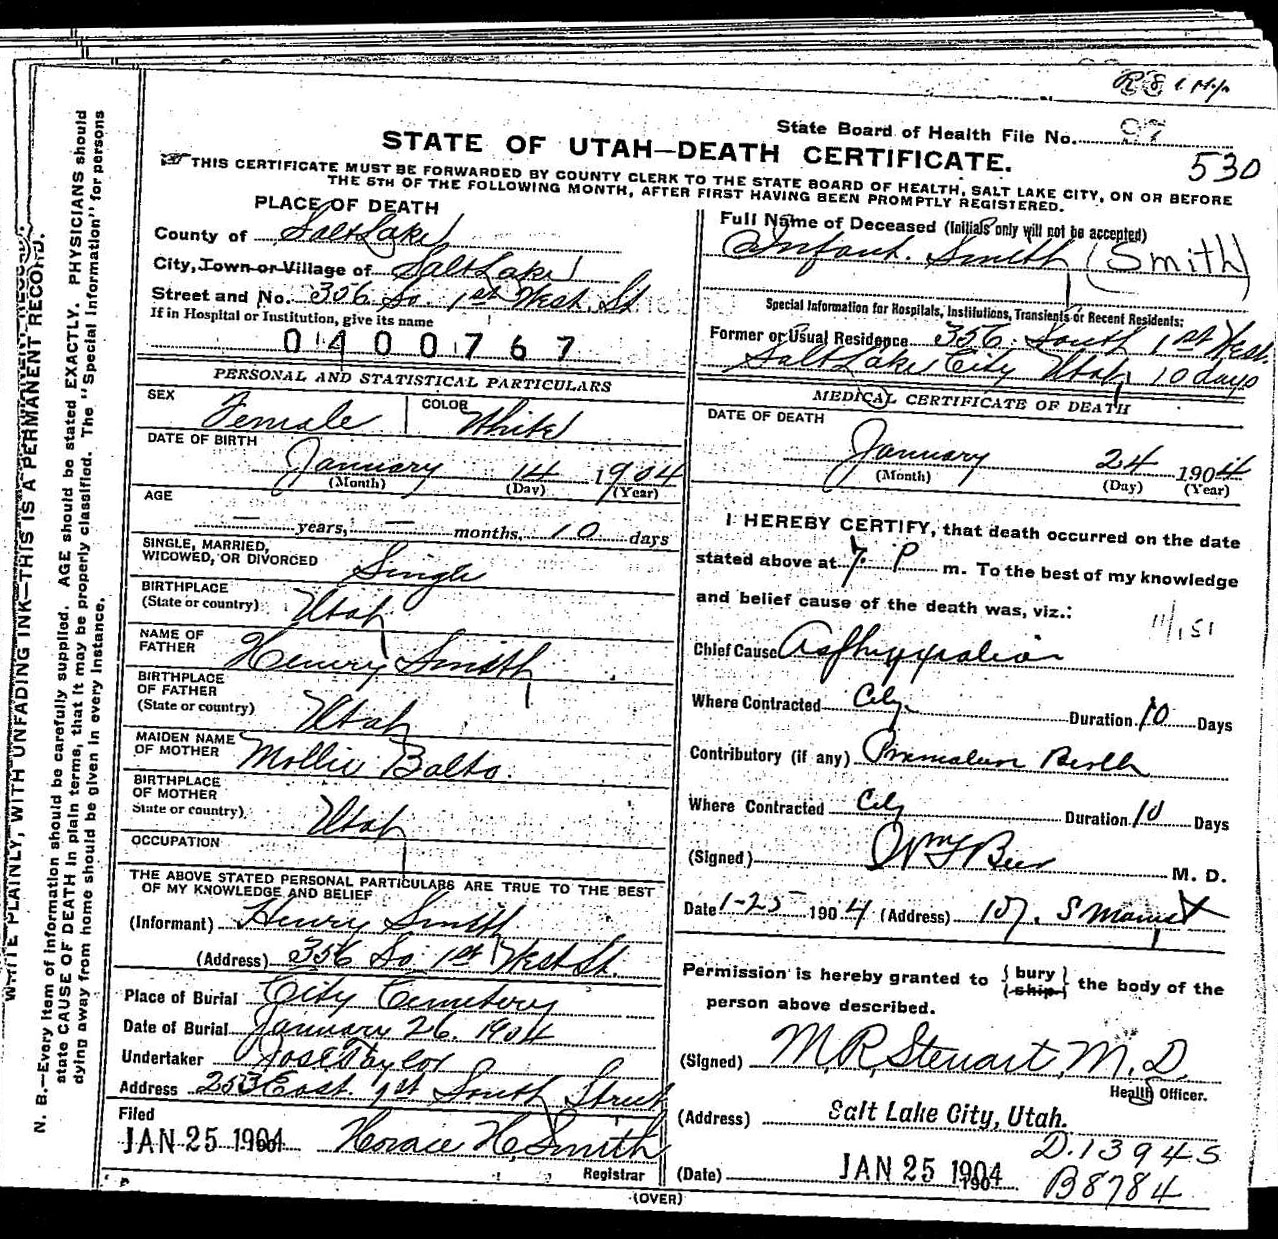 State Board of Health File No. 97
530
STATE OF UTAH—DEATH CERTIFICATE.
THIS CERTIFICATE MUST BE FORWARDED BY COUNTY CLERK TO THE STATE BOARD OF HEALTH, SALT LAKE CITY, ON OR BEFORE
THE 5TH OF THE FOLLOWING MONTH, AFTER FIRST HAVING BEEN PROMPTLY REGISTERED.
WRITE PLAINLY, WITH UNFADING INK—THIS IS A PERMANENT RECORD.
N. B.—Every item of information should be carefully supplied. AGE should be stated EXACTLY. PHYSICIANS should
state CAUSE OF DEATH in plain terms, that it may be properly classified. The "Special Information" for persons
dying away from home should be given in every instance.
PLACE OF DEATH
County of Salt Lake
City, Town or Village of Salt Lake
Street and No. 356 So. 1st West St
If in Hospital or Institution, give its name
0400767
PERSONAL AND STATISTICAL PARTICULARS
SEX Female COLOR White
DATE OF BIRTH
January 14 1904
(Month) (Day) (Year)
AGE
— years, — months, 10 days
SINGLE, MARRIED,
WIDOWED, OR DIVORCED Single
BIRTHPLACE
(State or country) Utah
NAME OF
FATHER Henry Smith
BIRTHPLACE
OF FATHER
(State or country) Utah
MAIDEN NAME
OF MOTHER Mollie Balto.
BIRTHPLACE
OF MOTHER
State or country) Utah
OCCUPATION
THE ABOVE STATED PERSONAL PARTICULARS ARE TRUE TO THE BEST
OF MY KNOWLEDGE AND BELIEF
(Informant) Henry Smith
(Address) 356 So 1st West St.
Place of Burial City Cemetery
Date of Burial January 26. 1904
Undertaker Jos E Taylor
Address 253 East. 1st South Street
Filed
JAN 25 1904 Horace H. Smith
Registrar
Full Name of Deceased (Initials only will not be accepted)
Infant. Smith (Smith)
Special Information for Hospitals, Institutions, Transients or Recent Residents:
Former or Usual Residence 356. South 1st West.
Salt Lake City Utah 10 days
MEDICAL CERTIFICATE OF DEATH
DATE OF DEATH
January 24 1904
(Month) (Day) (Year)
I HEREBY CERTIFY, that death occurred on the date
stated above at 7. P m. To the best of my knowledge
and belief cause of the death was, viz.:
11/151
Chief Cause Asphyxiation
Where Contracted City. Duration 10 Days
Contributory (if any) Premature Birth
Where Contracted City Duration 10 Days
(Signed) Wm F Beer M. D.
Date 1-25 1904 (Address) 107. S Main St
Permission is hereby granted to { bury / ship } the body of the
person above described.
(Signed) M. R. Stewart, M. D.
Health Officer.
(Address) Salt Lake City, Utah.
D. 13945
(Date) JAN 25 1904
B8784
(OVER)